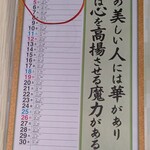 の美しい人には華があり
は心を高揚させる魔力がある
8
9
10
11
12
13
14
15
16
17
18
19
20
21
22
23
24
25
26
27
28
29
30